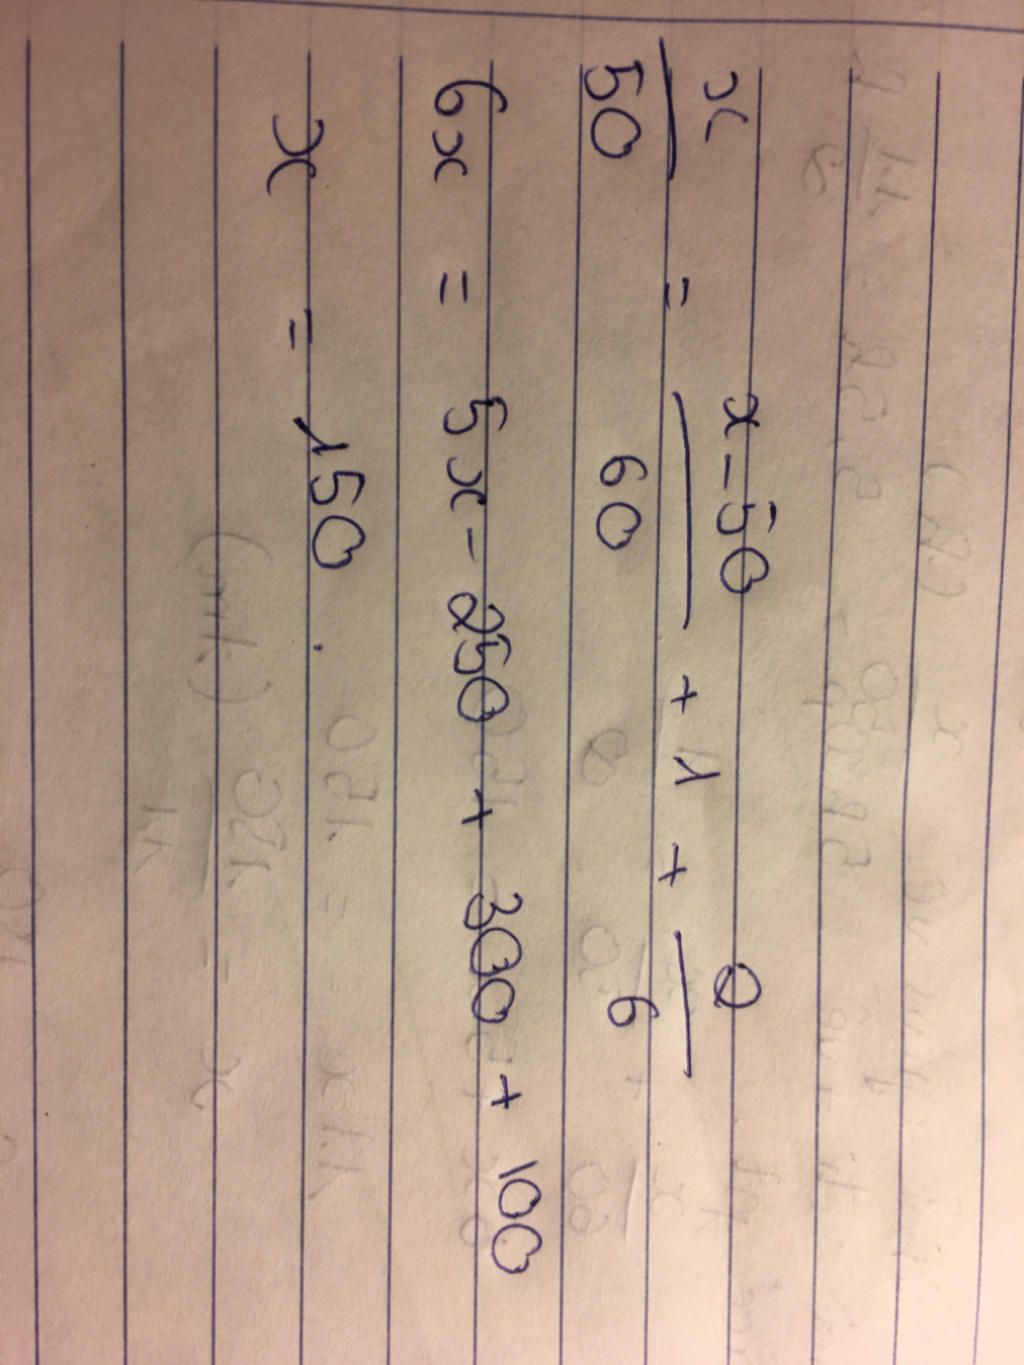 x/50 = x-50/60 + 1 + 2/6
6x = 5x - 250 + 300 + 100
x = 150.